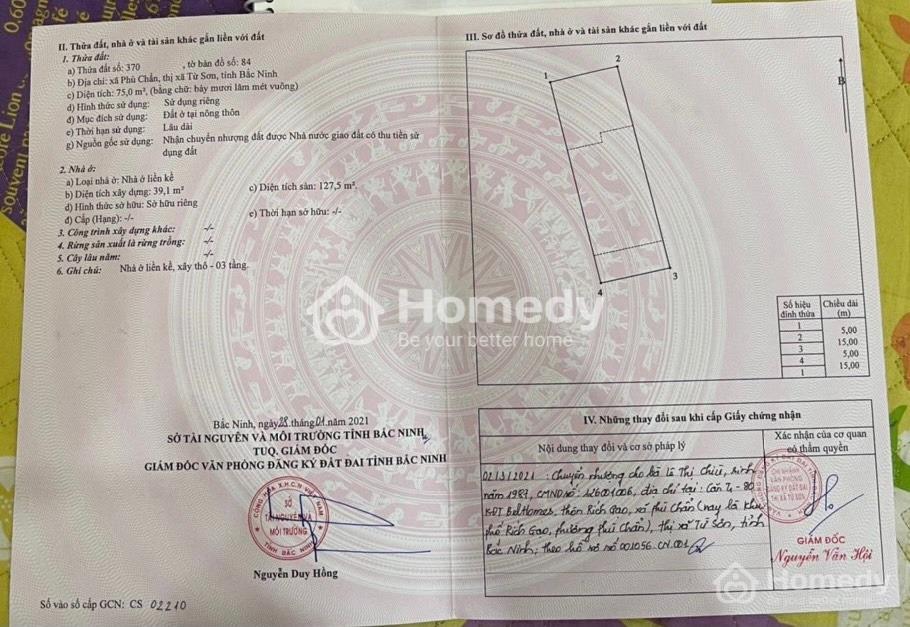 II. Thửa đất, nhà ở và tài sản khác gắn liền với đất
1. Thửa đất:
a) Thửa đất số: 370 , tờ bản đồ số: 84
b) Địa chỉ: xã Phù Chẩn, thị xã Từ Sơn, tỉnh Bắc Ninh
c) Diện tích: 75,0 m², (bằng chữ: bảy mươi lăm mét vuông)
d) Hình thức sử dụng: Sử dụng riêng
đ) Mục đích sử dụng: Đất ở tại nông thôn
e) Thời hạn sử dụng: Lâu dài
g) Nguồn gốc sử dụng: Nhận chuyển nhượng đất được Nhà nước giao đất có thu tiền sử
dụng đất
2. Nhà ở:
a) Loại nhà ở: Nhà ở liền kề
b) Diện tích xây dựng: 39,1 m² c) Diện tích sàn: 127,5 m².
d) Hình thức sở hữu: Sở hữu riêng
đ) Cấp (Hạng): -/- e) Thời hạn sở hữu: -/-
3. Công trình xây dựng khác: -/-
4. Rừng sản xuất là rừng trồng: -/-
5. Cây lâu năm: -/-
6. Ghi chú: Nhà ở liền kề, xây thô - 03 tầng.
Bắc Ninh, ngày 28 tháng 01 năm 2021
SỞ TÀI NGUYÊN VÀ MÔI TRƯỜNG TỈNH BẮC NINH
TUQ. GIÁM ĐỐC
GIÁM ĐỐC VĂN PHÒNG ĐĂNG KÝ ĐẤT ĐAI TỈNH BẮC NINH
SỞ
TÀI NGUYÊN VÀ
MÔI TRƯỜNG
TỈNH BẮC NINH
Nguyễn Duy Hồng
Số vào sổ cấp GCN: CS 02210
III. Sơ đồ thửa đất, nhà ở và tài sản khác gắn liền với đất
1
2
B
3
4
Số hiệu đỉnh thửa Chiều dài (m)
1
5,00
2
15,00
3
5,00
4
15,00
1
IV. Những thay đổi sau khi cấp Giấy chứng nhận
Nội dung thay đổi và cơ sở pháp lý
Xác nhận của cơ quan
có thẩm quyền
02/3/2021: Chuyển nhượng cho bà Lê Thị Chiu, sinh
năm 1987, CMND số: 12601006, địa chỉ tại: Căn T4-80
KĐT BelHomes, thôn Rích Gạo, xã Phù Chẩn (nay là khu
phố Rích Gạo, phường Phù Chẩn), thị xã Từ Sơn, tỉnh
Bắc Ninh; theo hồ sơ số 001056.CN.001
CHI NHÁNH
VĂN PHÒNG
ĐĂNG KÝ ĐẤT ĐAI
THỊ XÃ TỪ SƠN
GIÁM ĐỐC
Nguyễn Văn Hội
Homedy
Be your better home
Homedy
Be your better home
0.60
ore Lion
Souven